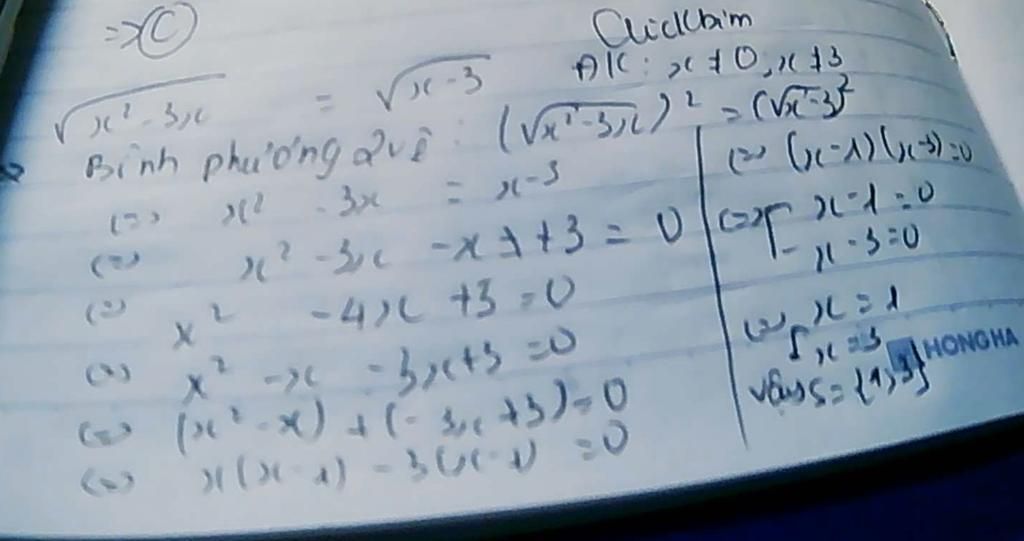 => C
ĐK: x ≠ 0, x ≠ 3
√x² - 3x = √x - 3
Bình phương 2 vế: (√x² - 3x)² = (√x - 3)²
<=> x² - 3x = x - 3
<=> x² - 3x - x + 3 = 0
<=> x² - 4x + 3 = 0
<=> x² - x - 3x + 3 = 0
<=> (x² - x) + (- 3x + 3) = 0
<=> x(x - 1) - 3(x - 1) = 0
<=> (x - 1)(x - 3) = 0
<=> [ x - 1 = 0
x - 3 = 0
<=> [ x = 1
x = 3
Vậy S = {1, 3}
HONG HA